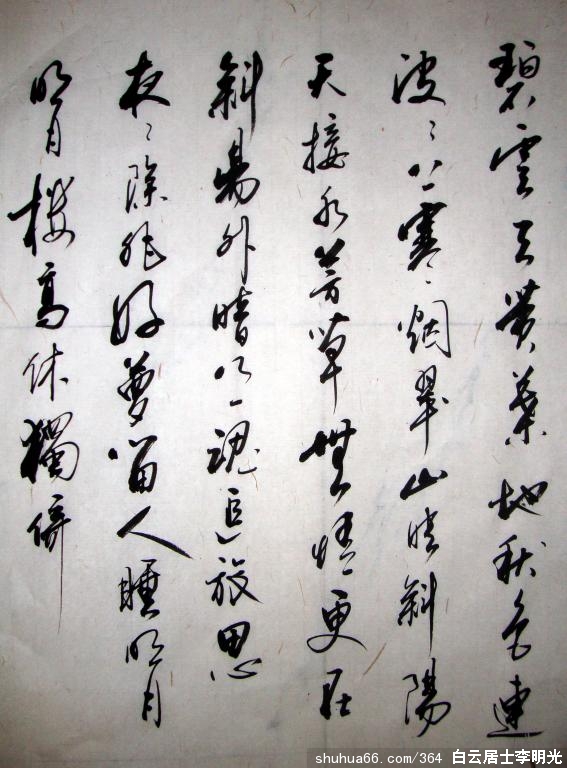 碧雲天黄葉地秋色連
波〻上寒烟翠山映斜陽
天接水芳草無情更在
斜陽外黯鄉魂追旅思
夜〻除非好夢留人睡明月
明月樓高休獨倚
shuhua66.com/364 白云居士李明光